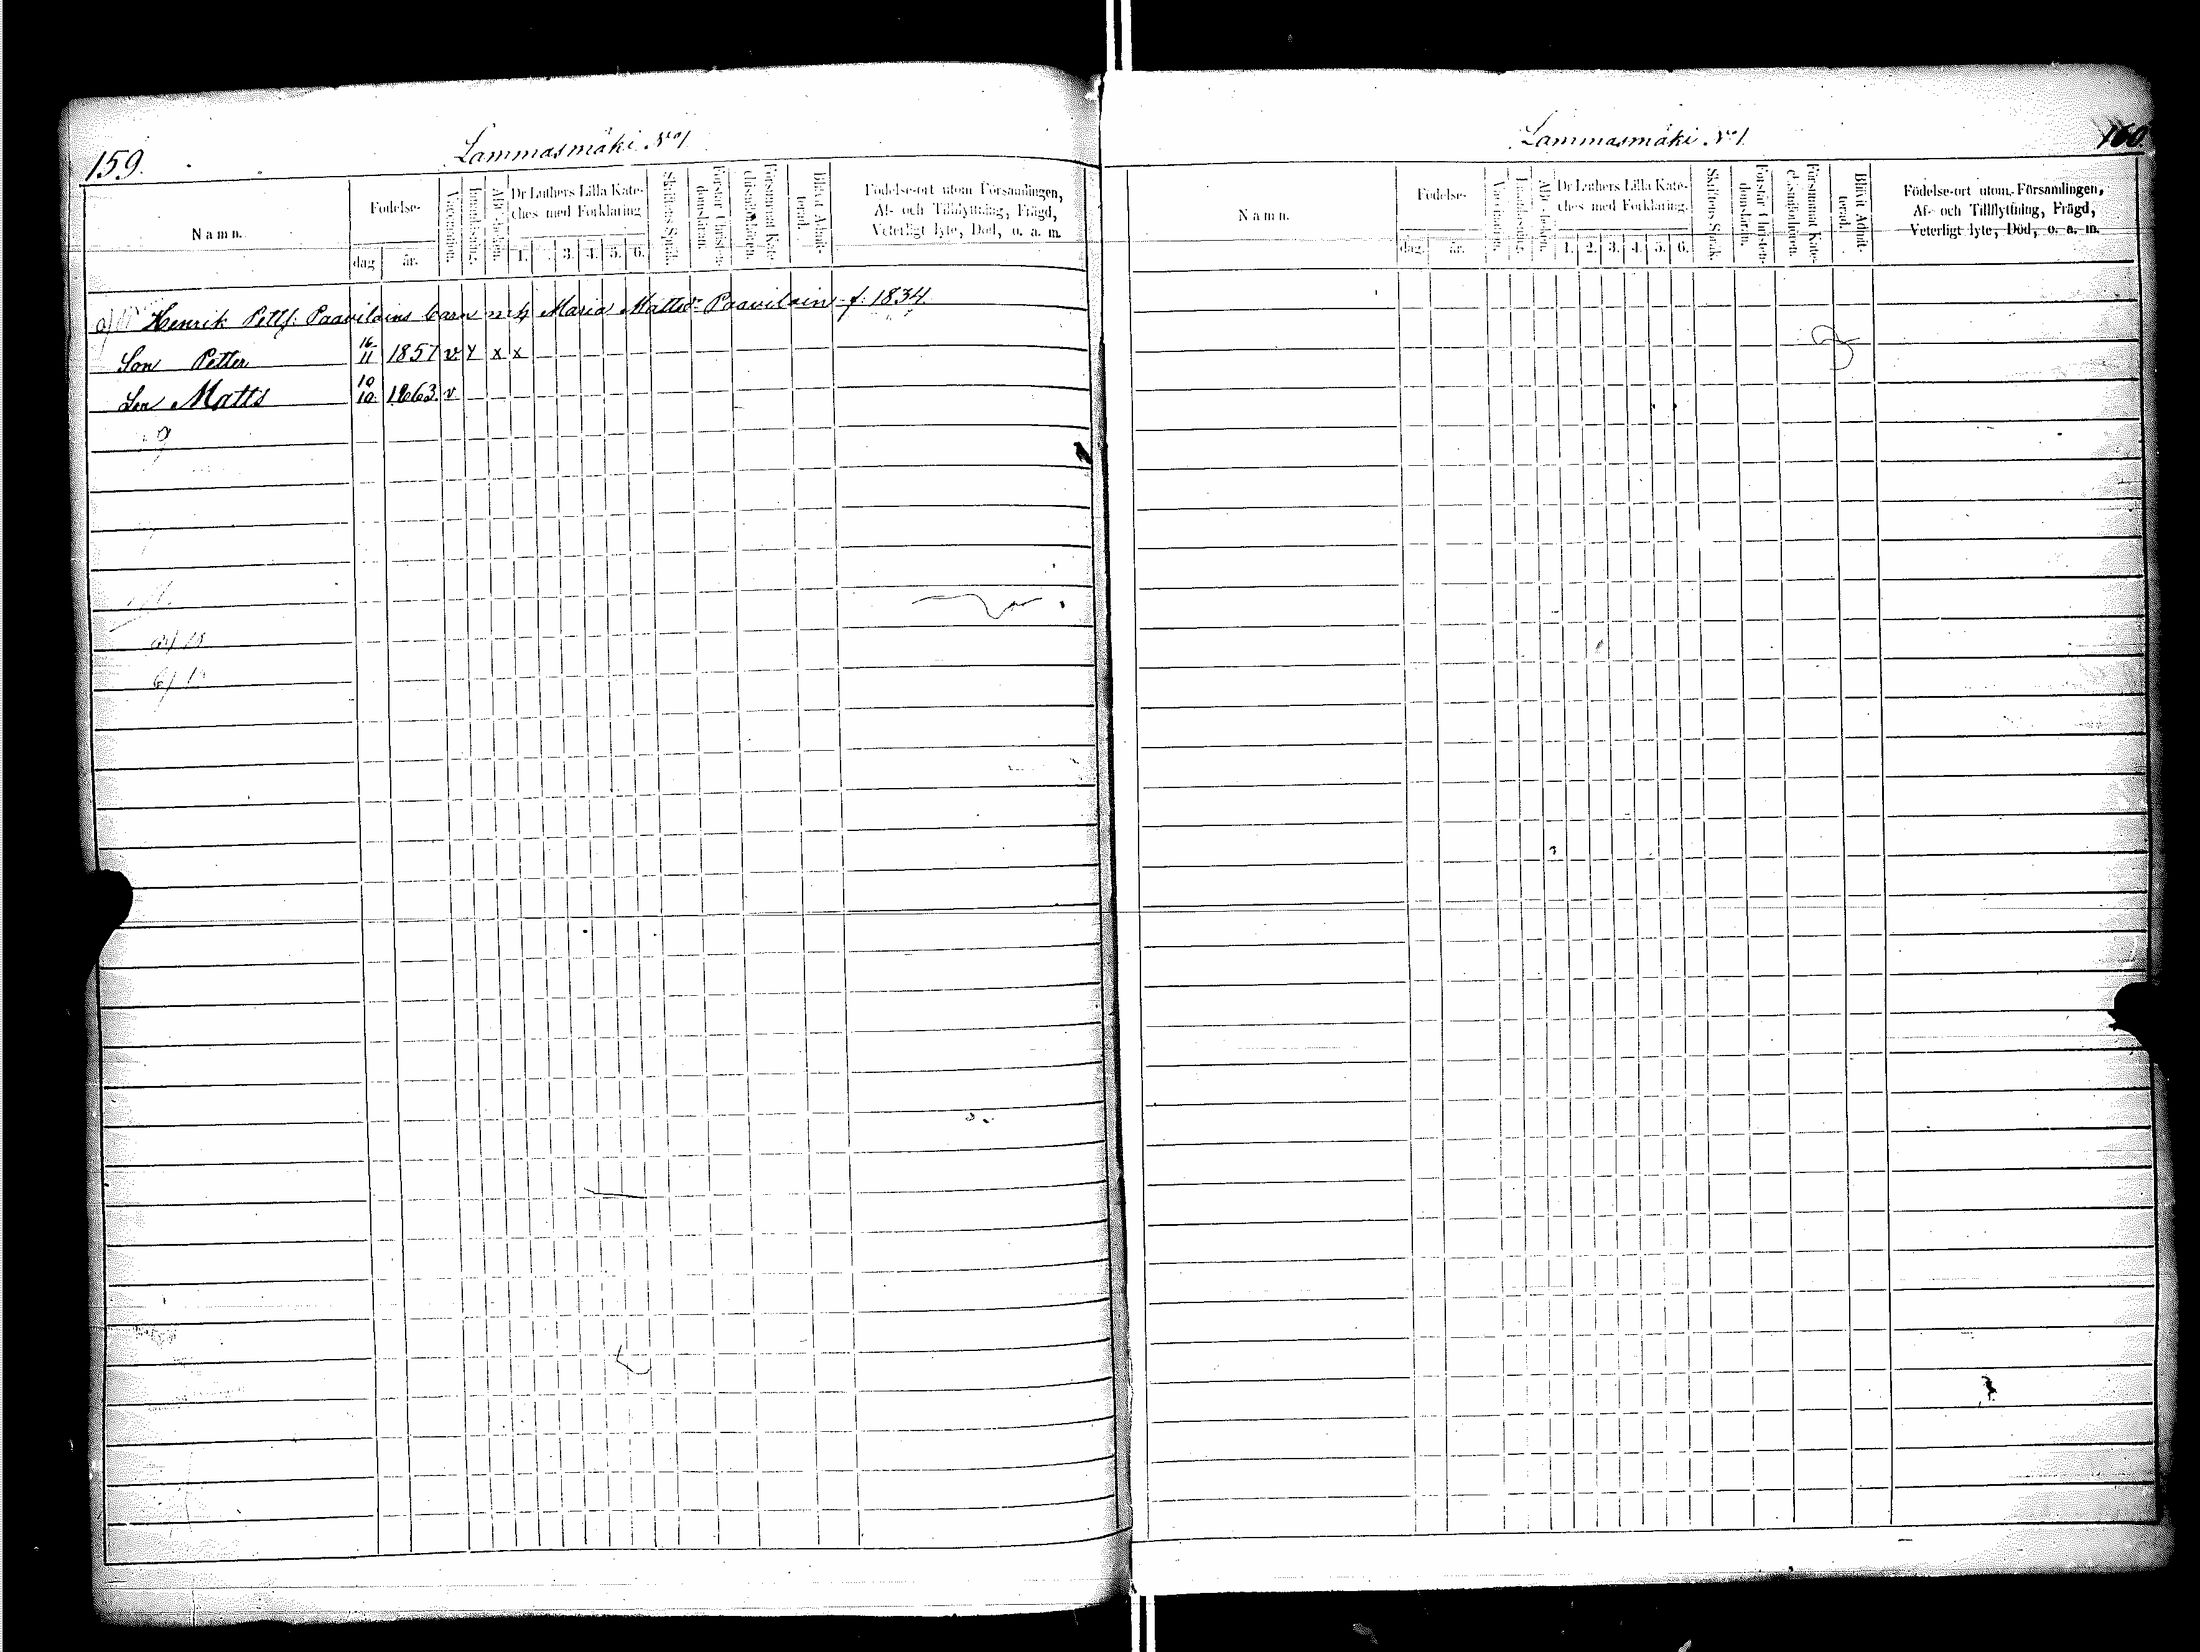 159.
Lammasmäki No 1
Namn.
Födelse-
dag
år.
Vaccination.
Innanläsning.
Abc-boken.
Dr Luthers Lilla Kate-
ches med Förklaring
1. 3. 4. 5. 6.
Skriftens Språk.
Förstår Christen-
domsläran.
Försummat Kate-
chismiförhören.
Blifvit Admit-
terad.
Födelse-ort utom Församlingen,
Af- och Tillflyttning, Frägd,
Veterligt lyte, Död, o. a. m.
Henrik Petts. Paavilains barn m h Maria Mattsdr Paavilain f. 1834.
Son Petter 16/11 1857 v Y x x
Son Matts 10/10 1863. v
a) 18
b) 18
Lammasmäki No 1
160.
Namn.
Födelse-
dag.
år.
Vaccination.
Innanläsning.
Abc-boken.
Dr Luthers Lilla Kate-
ches med Förklaring.
1. 2. 3. 4. 5. 6.
Skriftens Språk.
Förstår Christen-
domsläran.
Försummat Kate-
chismiförhören.
Blifvit Admit-
terad.
Födelse-ort utom Församlingen,
Af- och Tillflyttning, Frägd,
Veterligt lyte, Död, o. a. m.